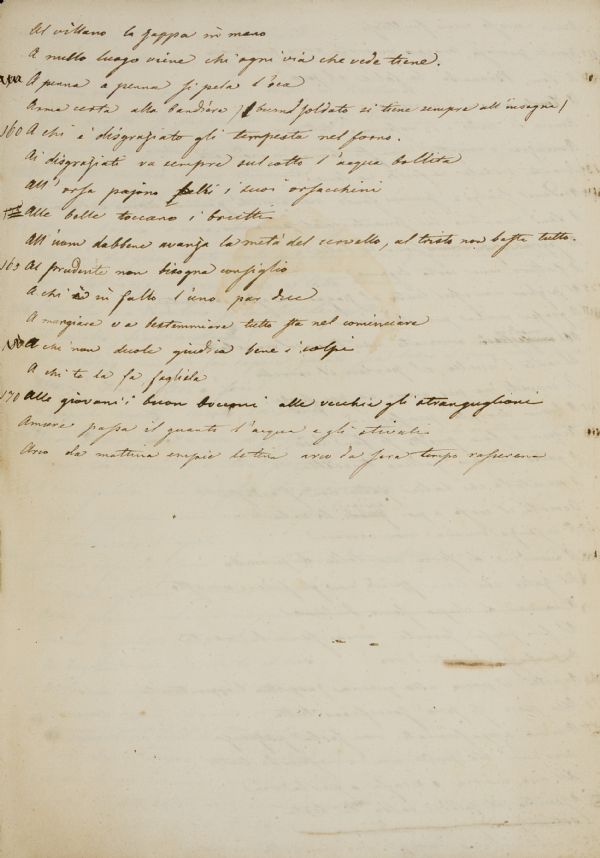 Al villano la zappa in mano
A nullo luogo viene chi ogni via che vede tiene.
A penna a penna si pela l'oca
Arma certa alla bandiera / buon soldato si tiene sempre all'insegna /
160 A chi è disgraziato gli tempesta nel forno.
Ai disgraziati va sempre sul cotto l'acqua bollita
All'orsa pajono belli i suoi orsacchini
Alle belle toccano i brutti
All'uom dabbene avanza la metà del cervello, al tristo non basta tutto.
165 Al prudente non bisogna consiglio
A chi è in fallo l'uno par due
A mangiare e a bestemmiare tutto sta nel cominciare
A chi non duole giudica bene i colpi
A chi te la fa fagliela
170 Alle giovani i buon bocconi alle vecchie gli stranguglioni
Amore passa il guanto l'acqua e gli stivali
Arco da mattina empie le tina arco da sera tempo rasserena